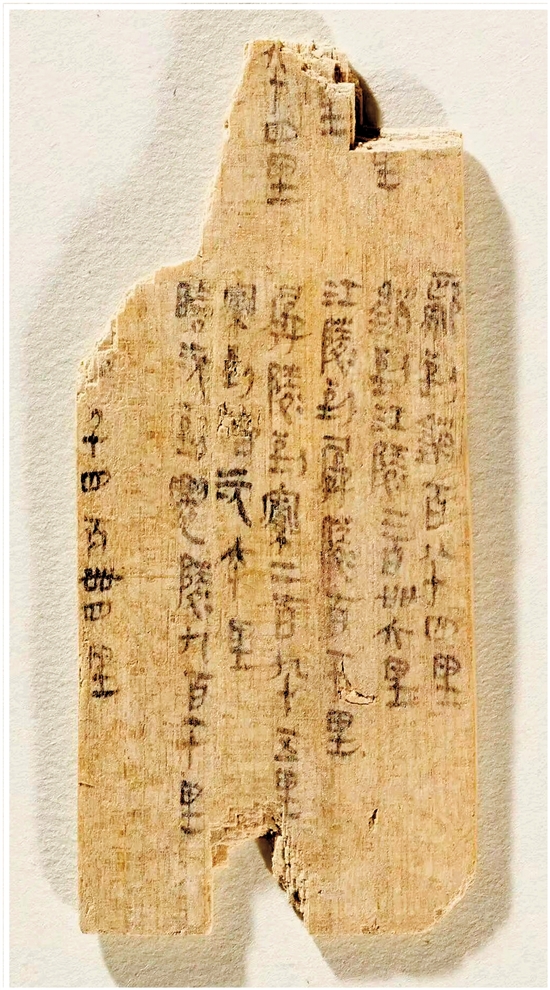 里
里
八十四里
鄢到銷百八十四里
銷到江陵二百卌六里
江陵到孱陵百一十里
孱陵到索二百九十五里
索到臨沅六十里
臨沅到遷陵九百一十里
千四百卌四里